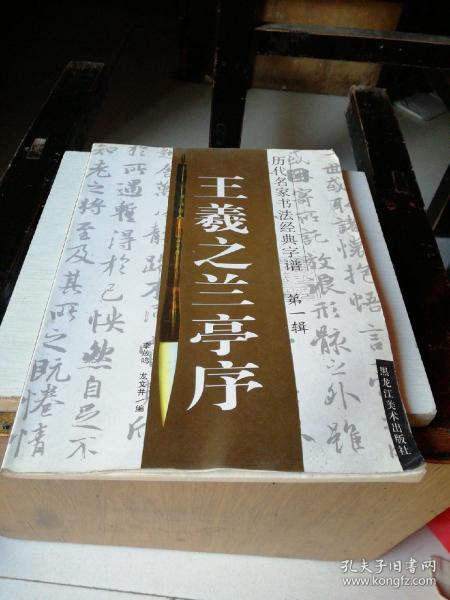 历代名家书法经典字谱 第一辑
王羲之兰亭序
李放鸣 左文井 编
黑龙江美术出版社
或取诸怀抱悟言
因寄所托放浪形骸之外虽
於所遇暂得於己怏然自足不
知老之将至及其所之既惓情
孔夫子旧书网
www.kongfz.com